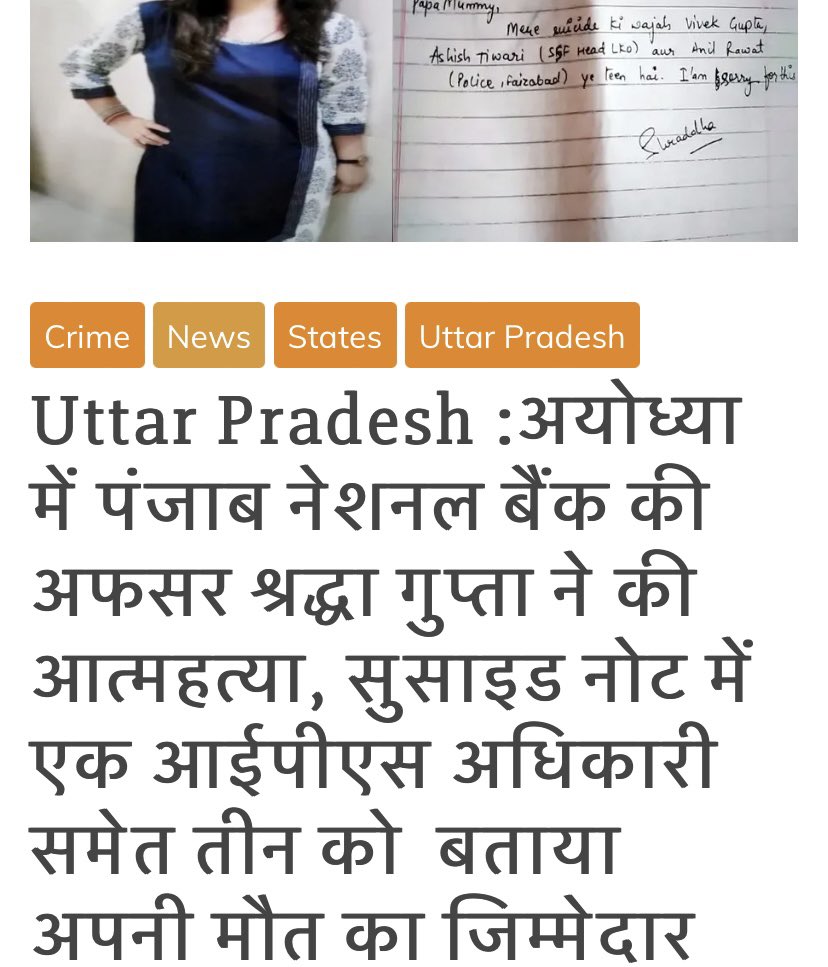 Papa Mummy,
Mere suicide ki wajah Vivek Gupta,
Ashish Tiwari (SSF Head LKO) aur Anil Rawat
(Police, Faizabad) ye teen hai. I'am sorry for this
Shraddha
Crime News States Uttar Pradesh
Uttar Pradesh :अयोध्या
में पंजाब नेशनल बैंक की
अफसर श्रद्धा गुप्ता ने की
आत्महत्या, सुसाइड नोट में
एक आईपीएस अधिकारी
समेत तीन को बताया
अपनी मौत का जिम्मेदार